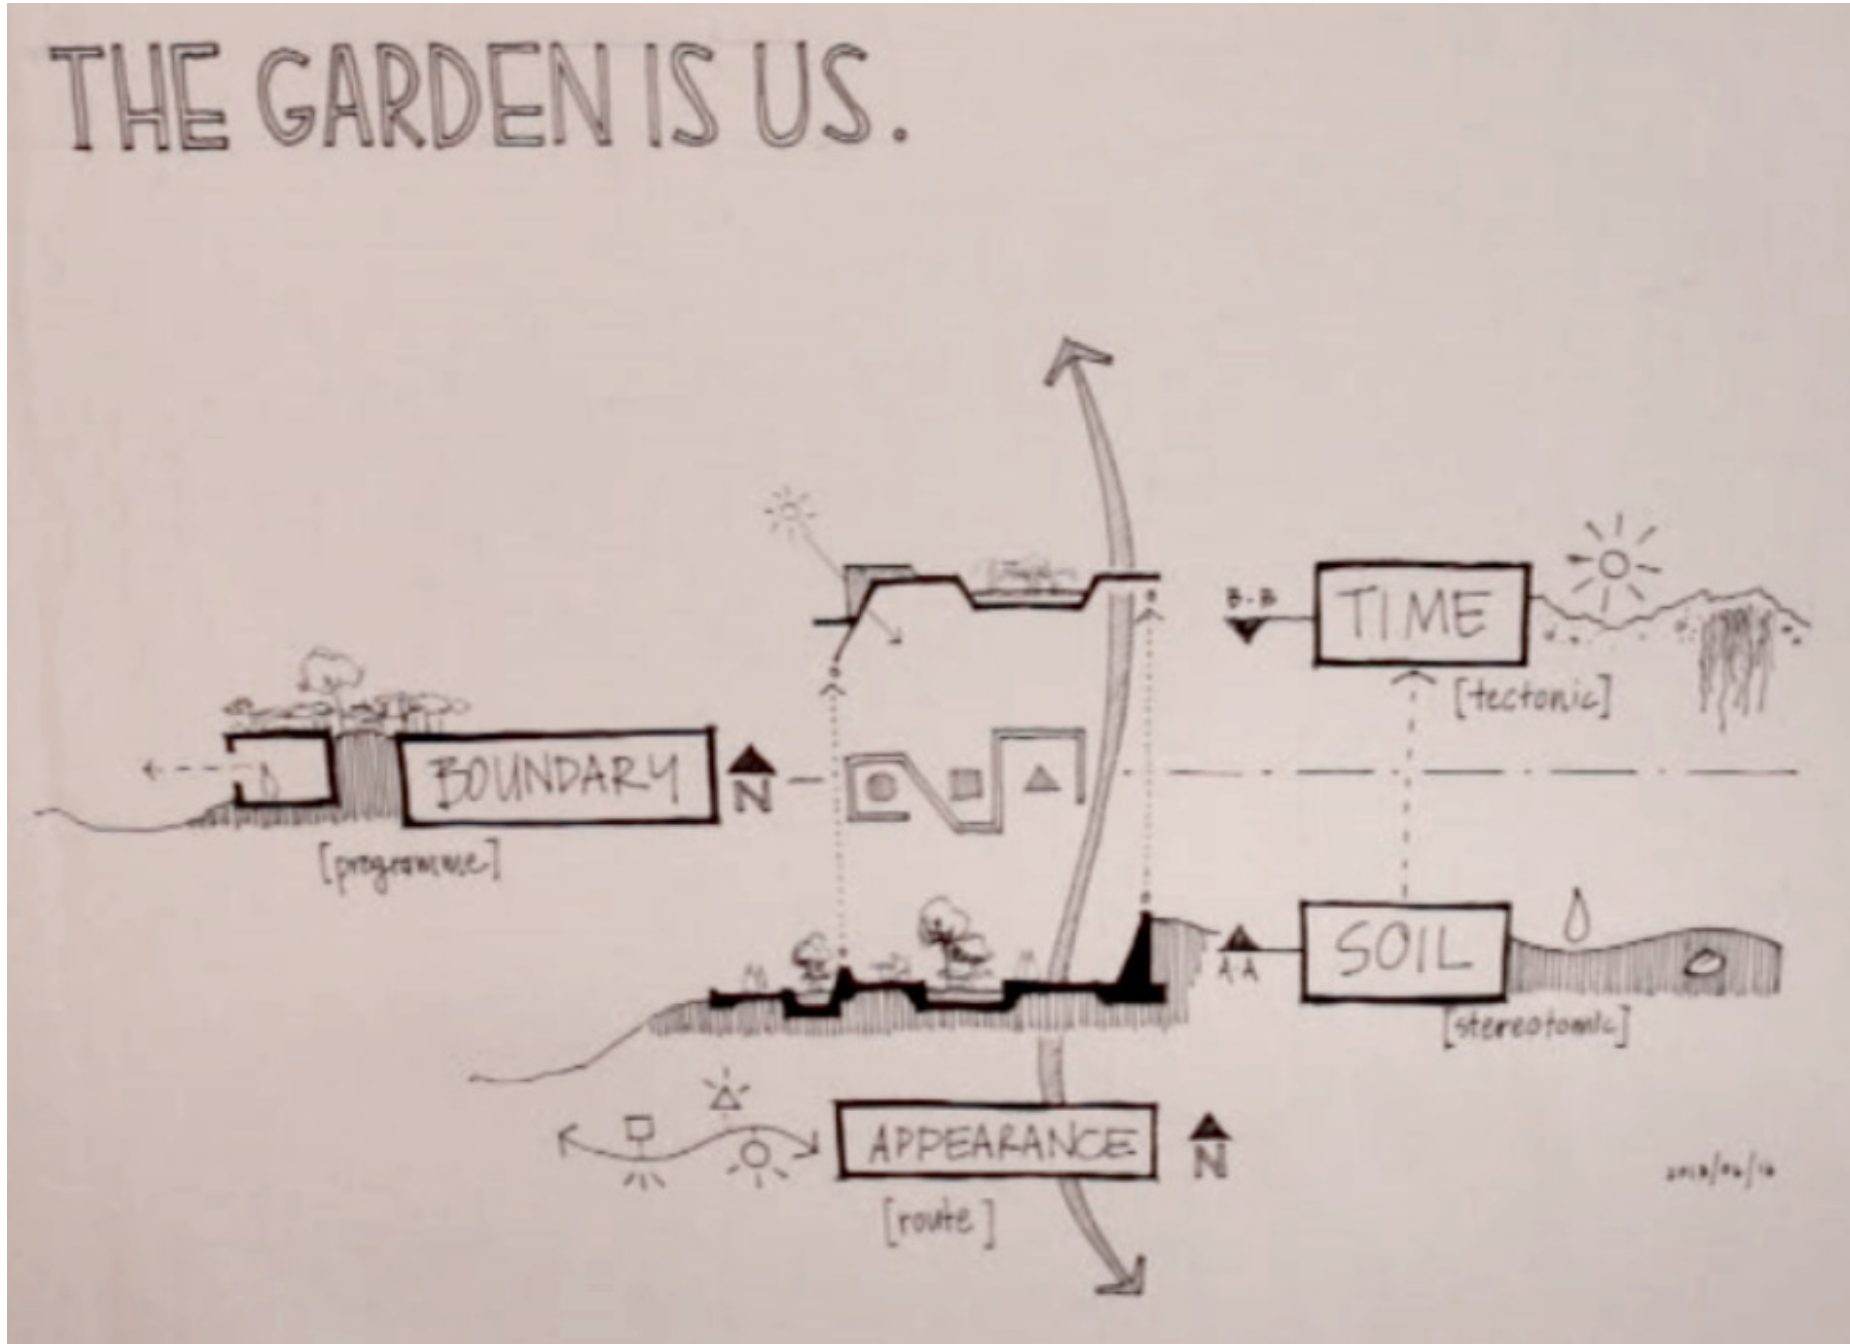 THE GARDEN IS US.
B-B
TIME
[tectonic]
BOUNDARY
N
[programme]
A-A
SOIL
[stereotomic]
APPEARANCE
N
[route]